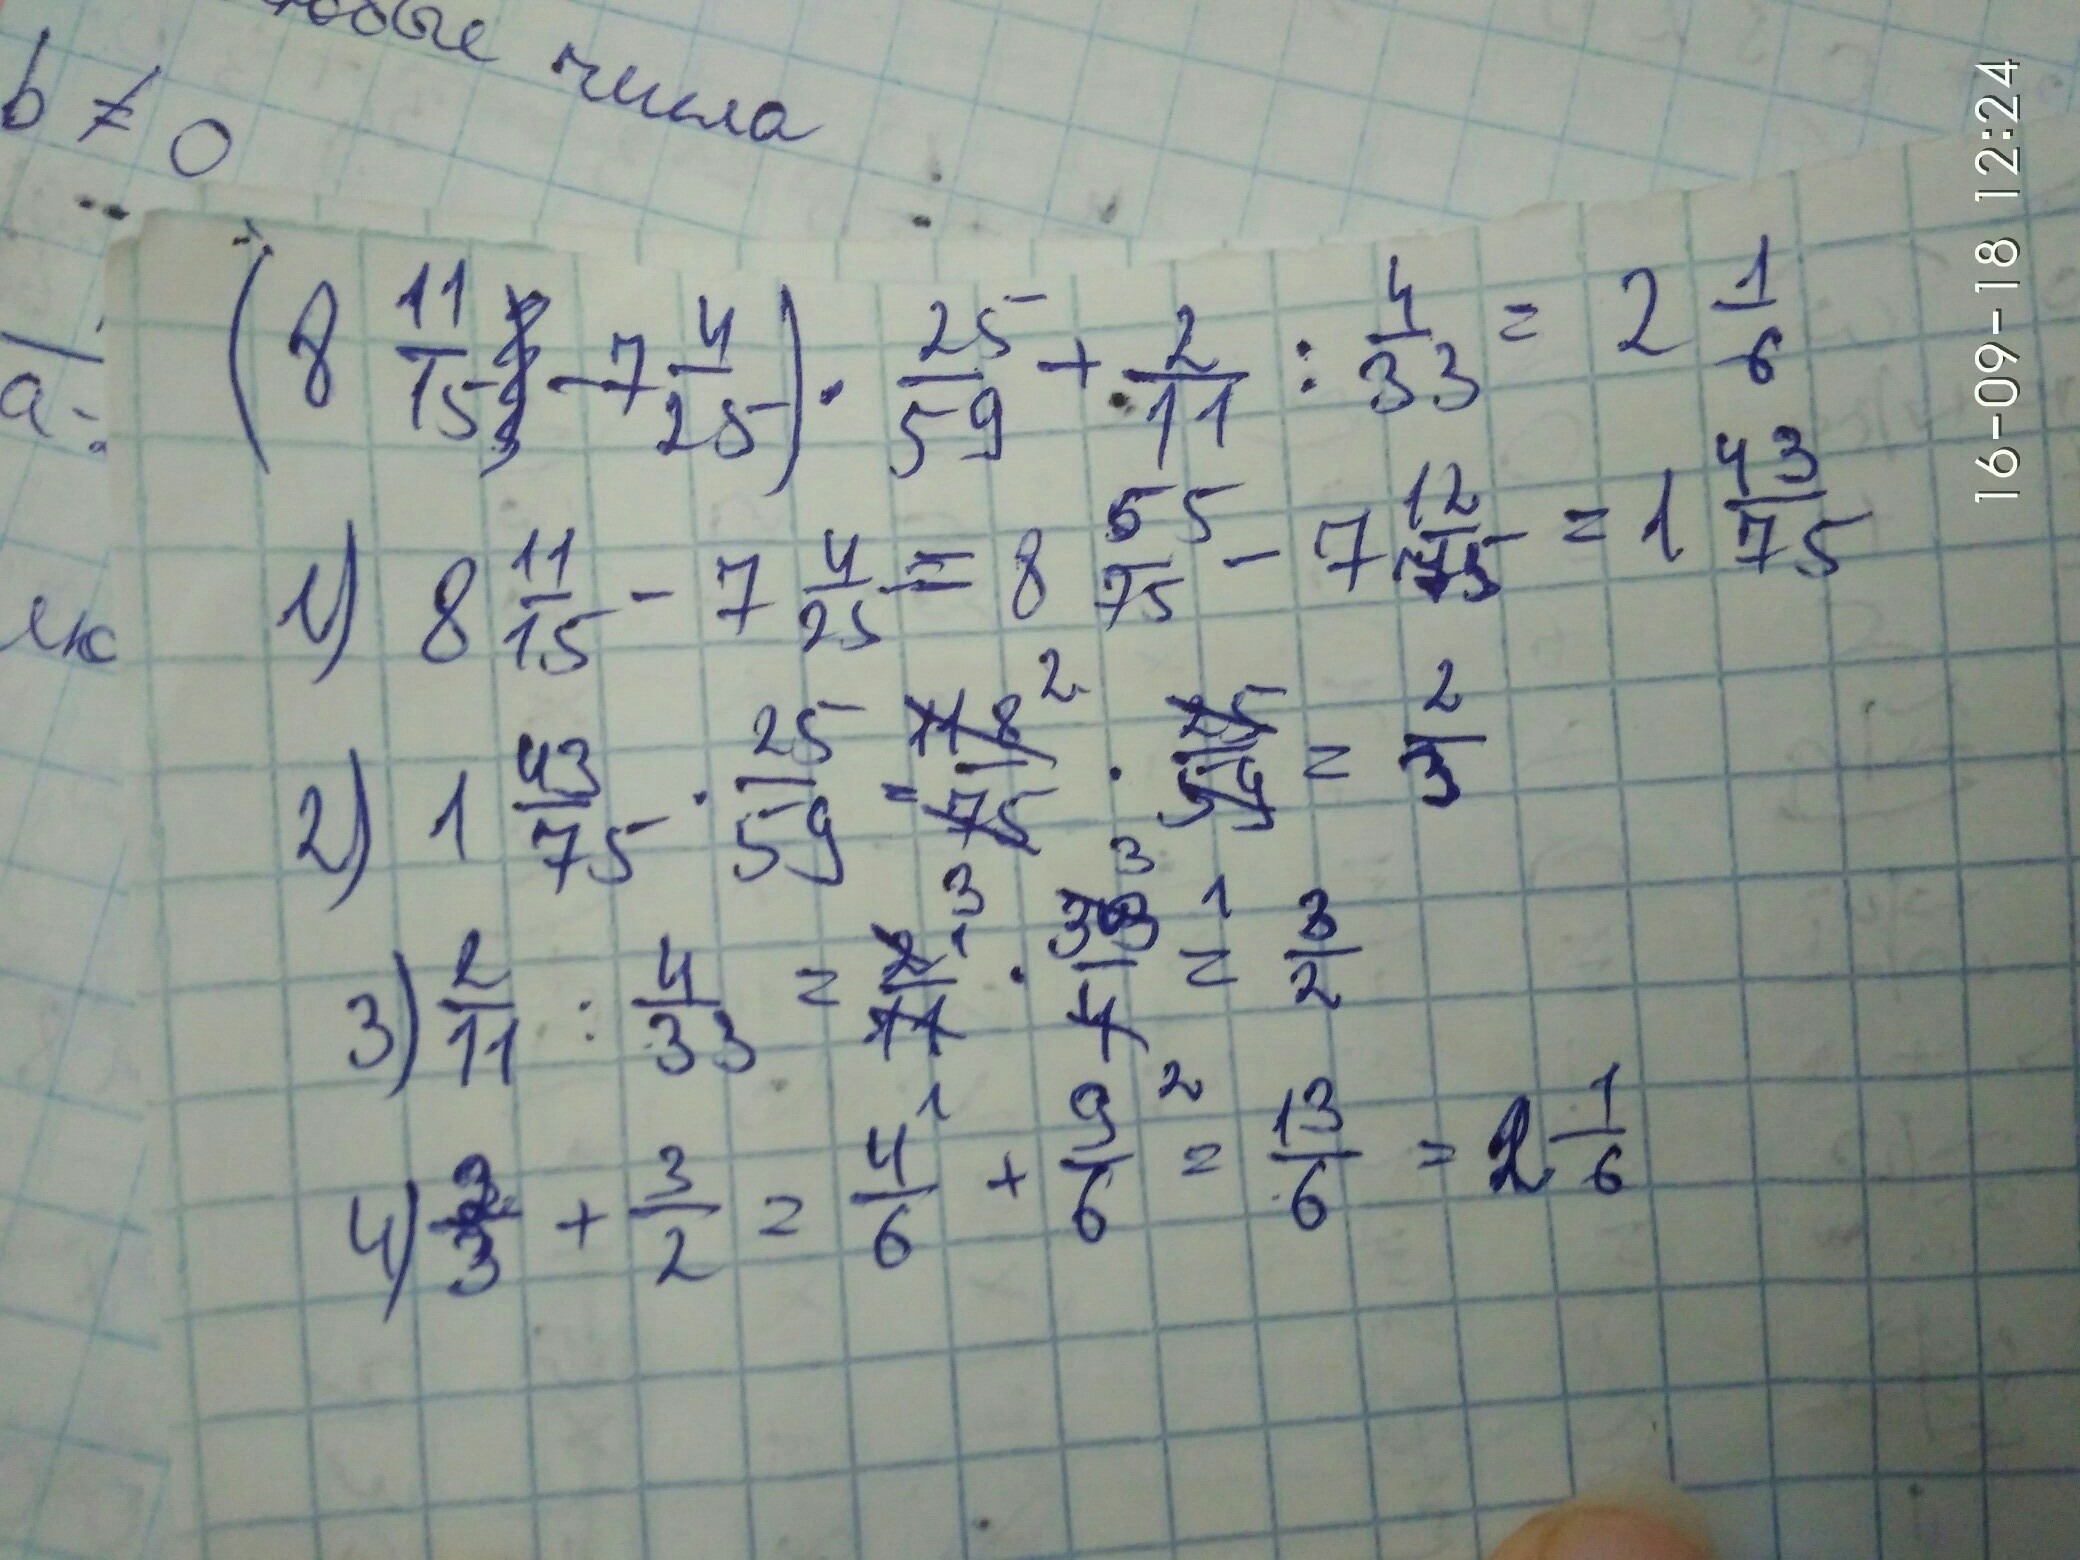 числа
b ≠ 0
a:
(8 11/15 - 7 4/25) · 25/59 + 2/11 : 4/33 = 2 1/6
1) 8 11/15 - 7 4/25 = 8 55/75 - 7 12/75 = 1 43/75
2) 1 43/75 · 25/59 = 118/75 · 25/59 = 2/3
2
3
3) 2/11 : 4/33 = 2/11 · 33/4 = 3/2
1
3
1
2
4) 2/3 + 3/2 = 4/6 + 9/6 = 13/6 = 2 1/6
1
16-09-18 12:24